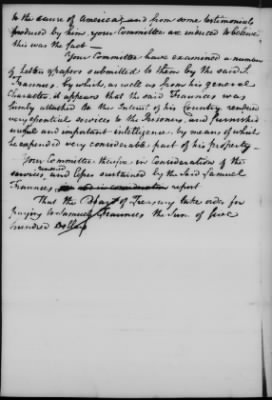 to the cause of America; and from some testimonials
produced by him your Committee are induced to believe
this was the fact —
Your Committee have examined a number
of Letters & papers submitted to them by the said S.
Fraunces, by which, as well as from his general
Character it appears that the said Fraunces was
firmly attached to the Interest of his Country, rendered
very essential services to the Prisoners, and furnished
useful and important intelligence; by means of which
he expended very considerable part of his property —
Your Committee therefore, in Consideration of the
services rendered and Losses sustained by the said Samuel
Fraunces report
That the Board of Treasury take order for
paying to Samuel Fraunces the Sum of
hundred Dollars